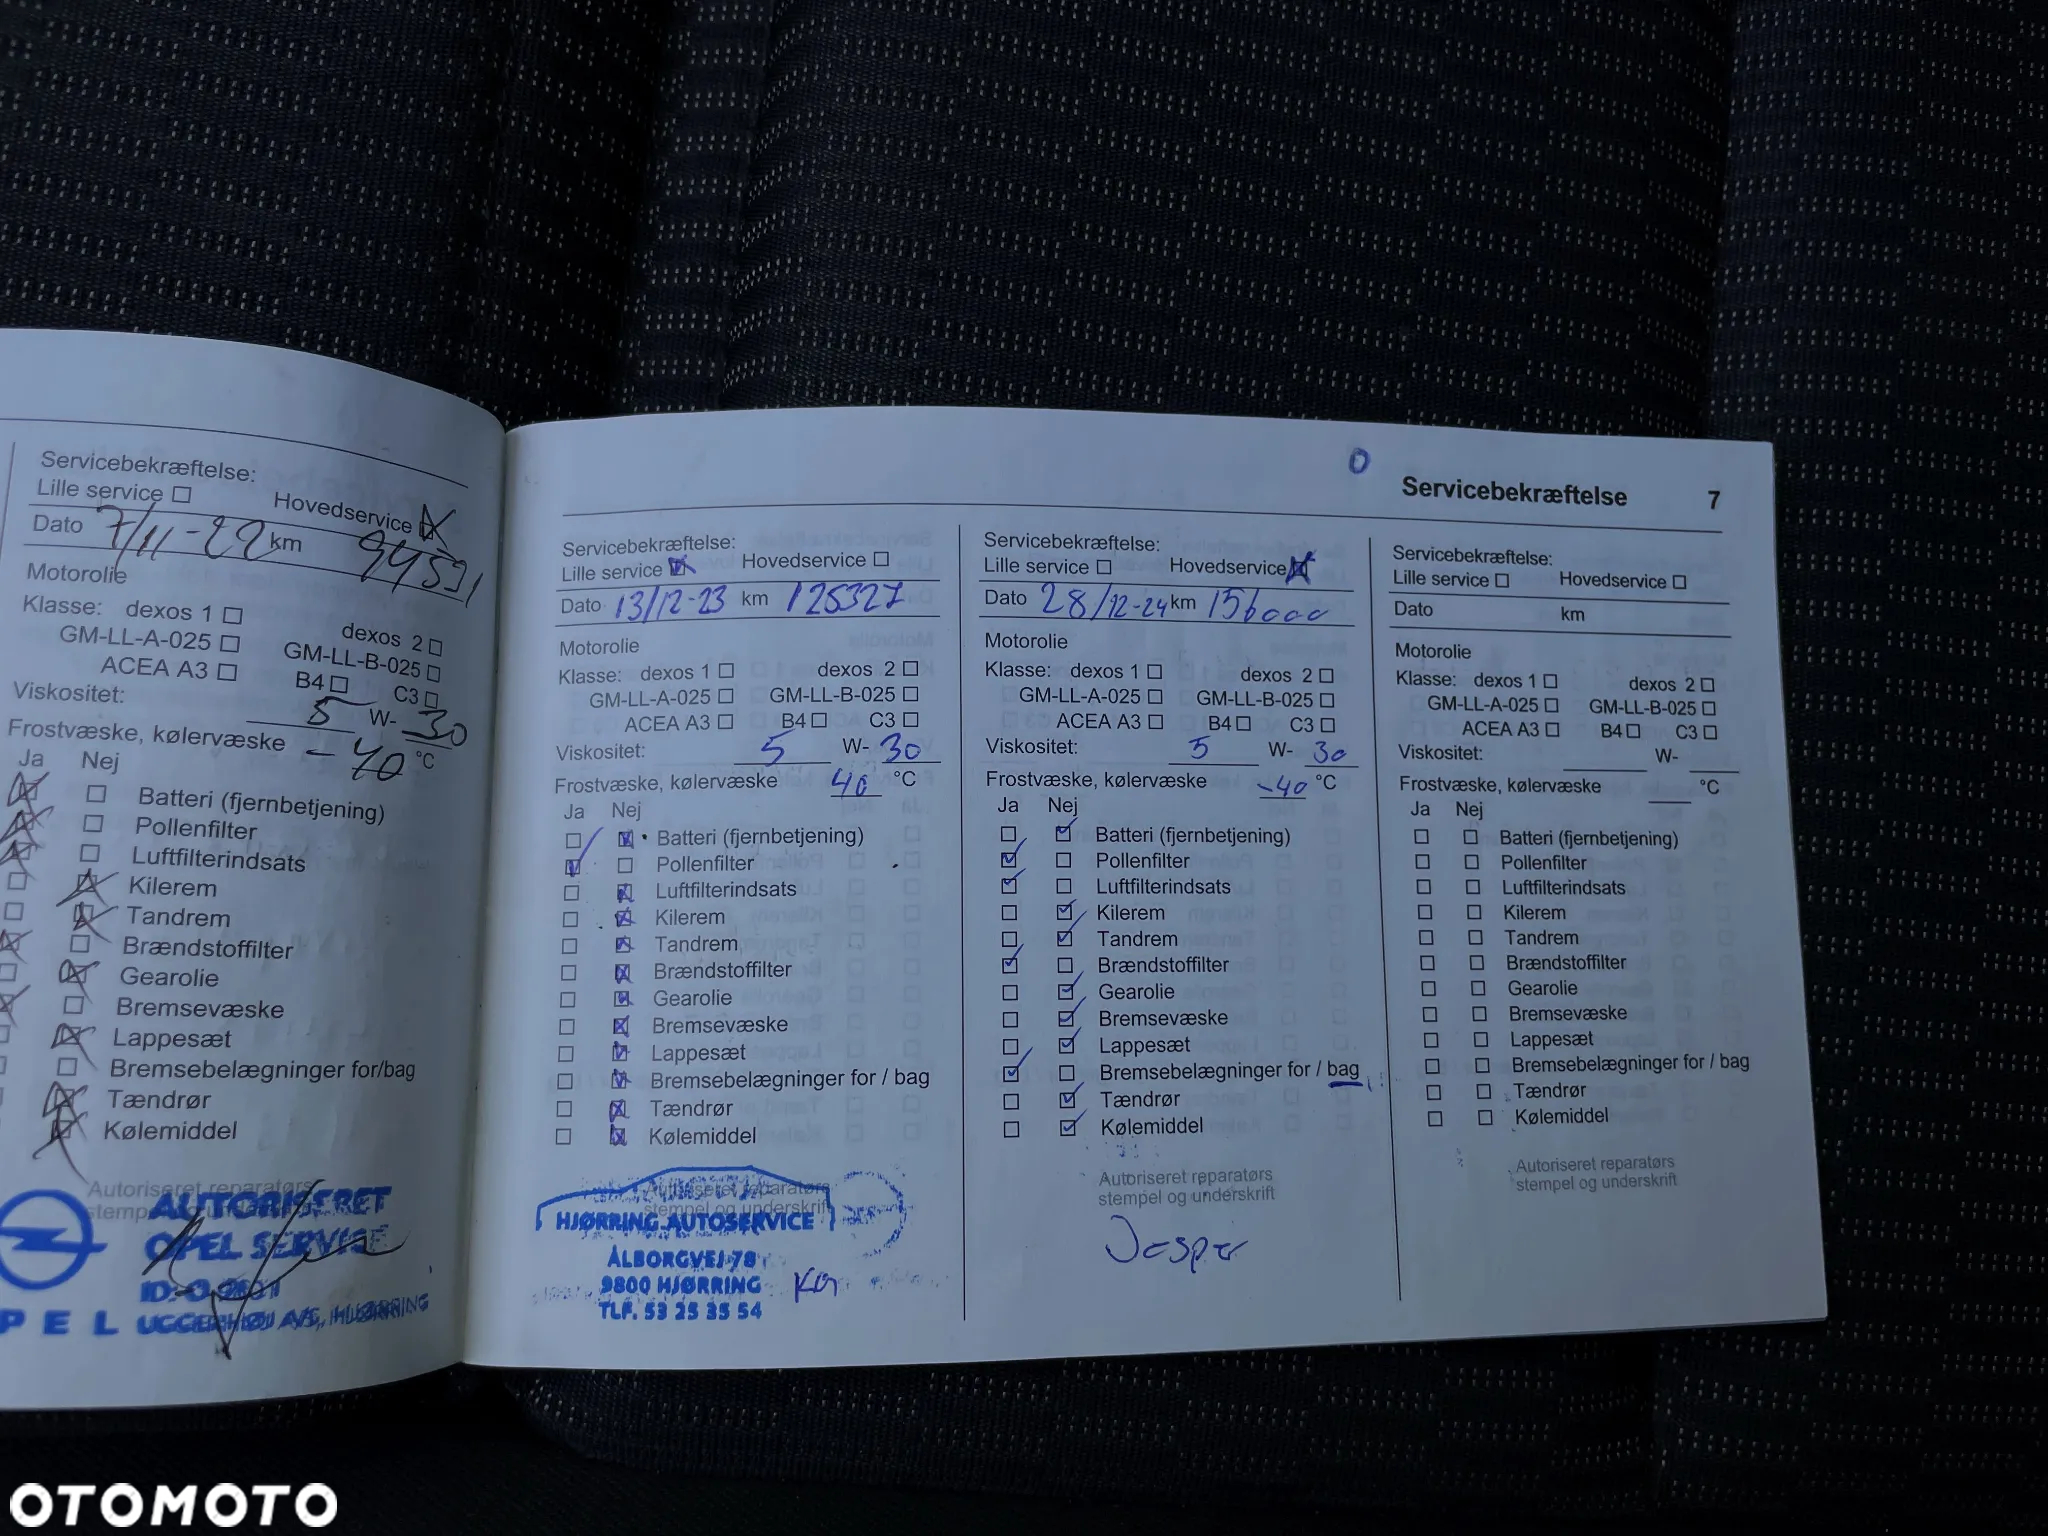 Servicebekræftelse:
Lille service Hovedservice
Dato 7/11-22 km 94531
Motorolie
Klasse: dexos 1 dexos 2
GM-LL-A-025 GM-LL-B-025
ACEA A3 B4 C3
Viskositet: 5 W- 30
Frostvæske, kølervæske -40 °C
Ja Nej
Batteri (fjernbetjening)
Pollenfilter
Luftfilterindsats
Kilerem
Tandrem
Brændstoffilter
Gearolie
Bremsevæske
Lappesæt
Bremsebelægninger for/bag
Tændrør
Kølemiddel
Autoriseret reparatørs
AUTORISERET
OPEL SERVICE
UGGERHØJ A/S, HJØRRING
O
Servicebekræftelse 7
Servicebekræftelse:
Lille service Hovedservice
Dato 13/12-23 km 125327
Motorolie
Klasse: dexos 1 dexos 2
GM-LL-A-025 GM-LL-B-025
ACEA A3 B4 C3
Viskositet: 5 W- 30
Frostvæske, kølervæske 40 °C
Ja Nej
Batteri (fjernbetjening)
Pollenfilter
Luftfilterindsats
Kilerem
Tandrem
Brændstoffilter
Gearolie
Bremsevæske
Lappesæt
Bremsebelægninger for / bag
Tændrør
Kølemiddel
Autoriseret reparatørs
stempel og underskrift
HJØRRING AUTOSERVICE
ÅLBORGVEJ 78
9800 HJØRRING
TLF. 53 25 35 54
Servicebekræftelse:
Lille service Hovedservice
Dato 28/12-24 km 156000
Motorolie
Klasse: dexos 1 dexos 2
GM-LL-A-025 GM-LL-B-025
ACEA A3 B4 C3
Viskositet: 5 W- 30
Frostvæske, kølervæske -40 °C
Ja Nej
Batteri (fjernbetjening)
Pollenfilter
Luftfilterindsats
Kilerem
Tandrem
Brændstoffilter
Gearolie
Bremsevæske
Lappesæt
Bremsebelægninger for / bag
Tændrør
Kølemiddel
Autoriseret reparatørs
stempel og underskrift
Jesper
Servicebekræftelse:
Lille service Hovedservice
Dato km
Motorolie
Klasse: dexos 1 dexos 2
GM-LL-A-025 GM-LL-B-025
ACEA A3 B4 C3
Viskositet: W-
Frostvæske, kølervæske °C
Ja Nej
Batteri (fjernbetjening)
Pollenfilter
Luftfilterindsats
Kilerem
Tandrem
Brændstoffilter
Gearolie
Bremsevæske
Lappesæt
Bremsebelægninger for / bag
Tændrør
Kølemiddel
Autoriseret reparatørs
stempel og underskrift
OTOMOTO